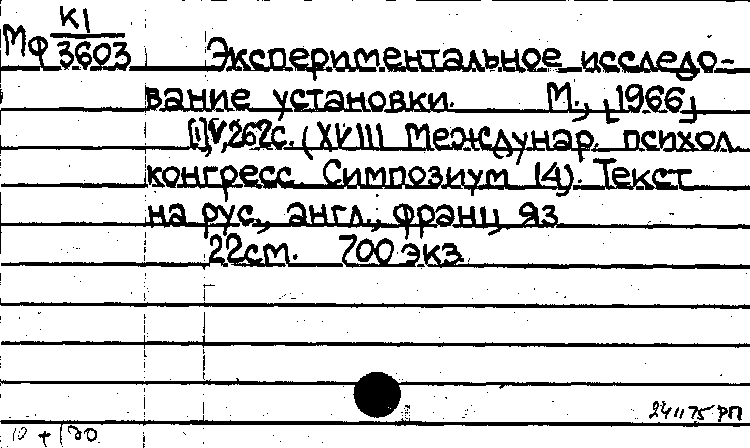 Мф К1
3603
Экспериментальное исследо-
вание установки. М., [1966]
[1], V, 262с. (XVIII Междунар. психол.
конгресс. Симпозиум 14). Текст
на рус., англ., франц. яз.
22см. 700 экз.